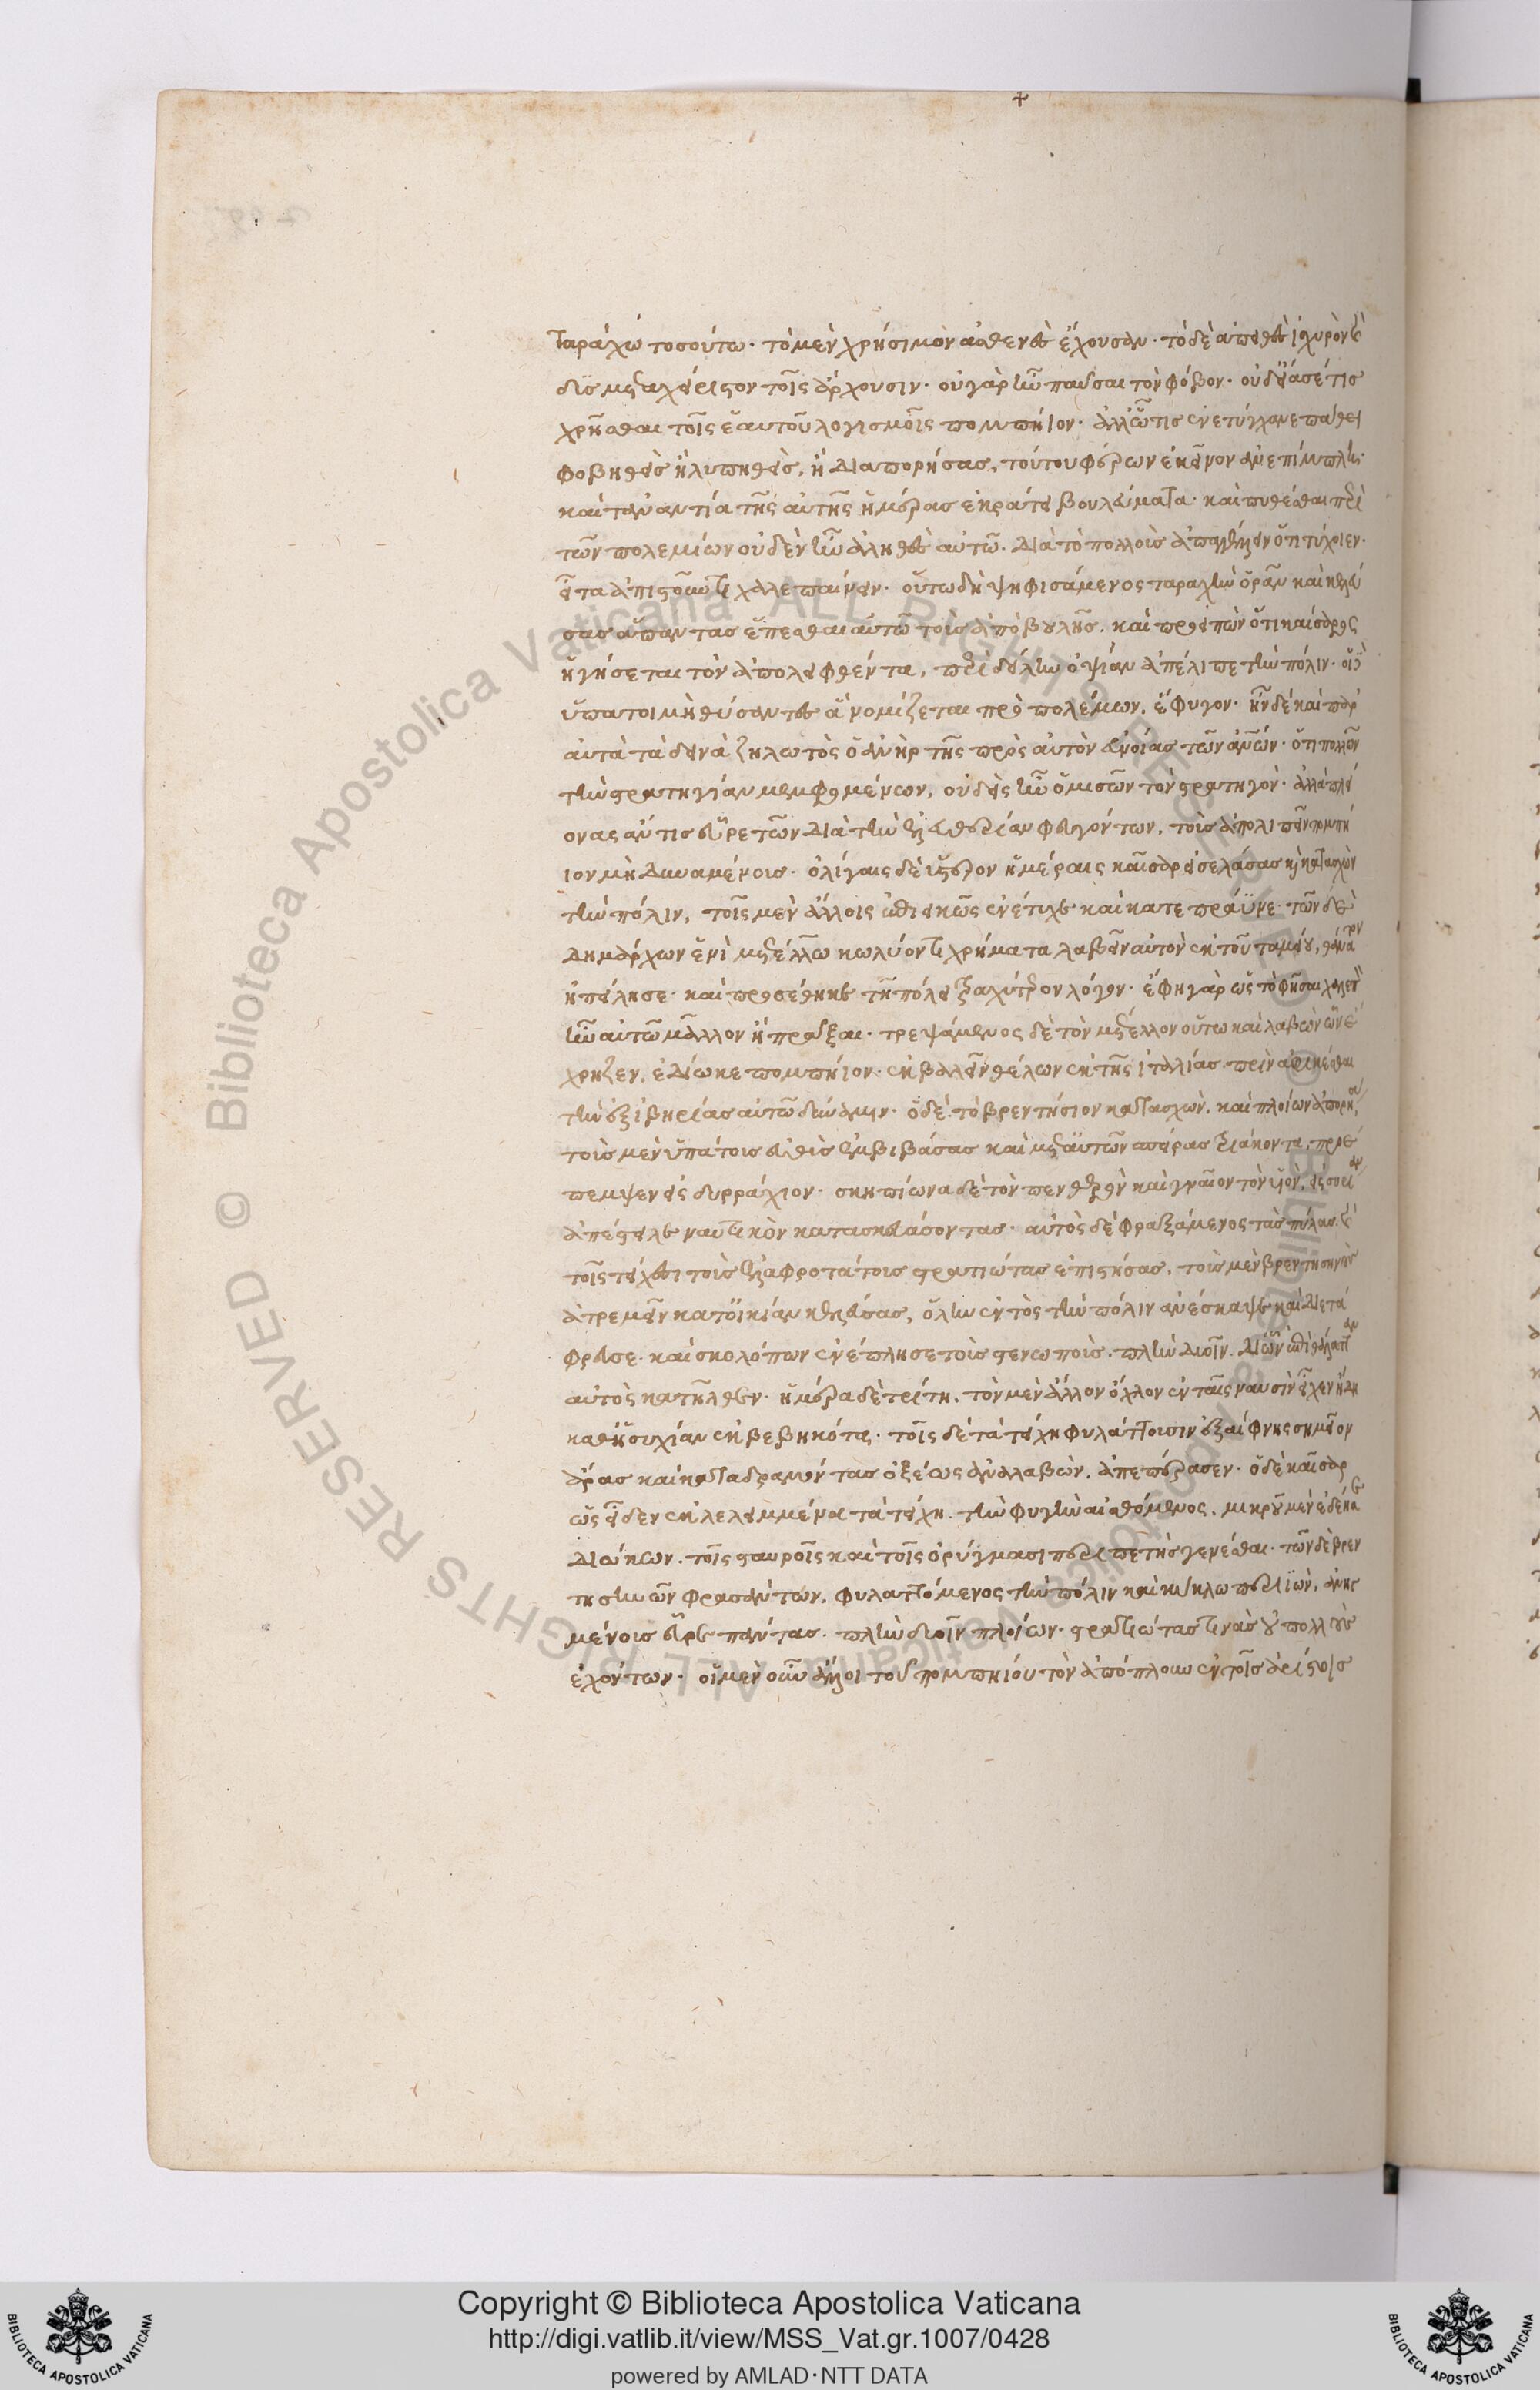 ταράχω τοσούτω· τὸ μὲν χρήσιμον ἀσθενὲς ἔχουσαν· τὸ δὲ ἀπειθὲς ἰσχυρὸν καὶ
δυσμεταχείριστον τοῖς ἄρχουσιν· οὐ γὰρ ἦν παῦσαι τὸν φόβον· οὐδ' εἴασέ τις
χρῆσθαι τοῖς ἑαυτοῦ λογισμοῖς πομπήιον· ἀλλ' ὧ τις ἐνετύγχανε πάθει
φοβηθεὶς ἢ λυπηθεὶς, ἢ διαπορήσας, τούτου φέρων ἐκεῖνον ἀνεπίμπλη·
καὶ τἀναντία τῆς αὐτῆς ἡμέρας ἐκράτει βουλεύματα· καὶ πυθέσθαι περὶ
τῶν πολεμίων οὐδὲν ἦν ἀληθὲς αὐτῶ· διὰ τὸ πολλοὺς ἀπαγγέλλειν ὅτι τύχοιεν·
εἶτα ἀπιστοῦντι χαλεπαίνειν· οὕτω δὴ ψηφισάμενος ταραχὴν ὁρᾶν καὶ κελεύ
σας ἅπαντας ἕπεσθαι αὐτῶ τοὺς ἀπὸ βουλῆς· καὶ προειπὼν ὅτι καίσαρος
ἡγήσεται τὸν ἀπολειφθέντα, περὶ δείλην ὀψίαν ἀπέλιπε τὴν πόλιν· οἱ δὲ
ὕπατοι μὴ θύσαντες ἃ νομίζεται πρὸ πολέμων, ἔφυγον· ἦν δὲ καὶ παρ'
αὐτὰ τὰ δεινὰ ζηλωτὸς ὁ ἀνὴρ τῆς πρὸς αὐτὸν εὐνοίας τῶν ἀνθρώπων· ὅτι πολλῶν
τὴν στρατηγίαν μεμφομένων, οὐδεὶς ἦν ὁ μισῶν τὸν στρατηγὸν· ἀλλὰ πλεί
ονας ἄν τις εὗρε τῶν διὰ τὴν ἐλευθερίαν φευγόντων, τοὺς ἀπολιπεῖν πομπή
ιον μὴ δυναμένους· ὀλίγαις δὲ ὕστερον ἡμέραις καῖσαρ εἰσελάσας καὶ κατασχὼν
τὴν πόλιν, τοῖς μὲν ἄλλοις ἐπιεικῶς ἐνέτυχε καὶ κατεπράϋνε· τῶν δὲ
δημάρχων ἑνὶ μετέλλω κωλύοντι χρήματα λαβεῖν αὐτὸν ἐκ τοῦ ταμείου, θάνατον
ἠπείλησε· καὶ προσέθηκε τῆ πόλει τραχύτερον λόγον· ἔφη γὰρ ὡς τὸ φῆσαι χαλεπὸν
ἦν αὐτῶ μᾶλλον ἢ πρᾶξαι· τρεψάμενος δὲ τὸν μέτελλον οὕτω καὶ λαβὼν ὧν ἔ
χρηζεν, ἐδίωκε πομπήιον· ἐκβαλεῖν θέλων ἐκ τῆς ἰταλίας πρὶν ἀφικέσθαι
τὴν ἐξ ἰβηρίας αὐτῶ δύναμιν· ὁ δὲ τὸ βρεντήσιον κατασχὼν, καὶ πλοίων εὐπορήσας
τοὺς μὲν ὑπάτους εὐθὺς ἐμβιβάσας καὶ μετ' αὐτῶν σπείρας τριάκοντα, προέ
πεμψεν εἰς δυρράχιον· σκηπίωνα δὲ τὸν πενθερὸν καὶ γναῖον τὸν υἱὸν, εἰς συρίαν
ἀπέστειλε ναυτικὸν κατασκευάσοντας· αὐτὸς δὲ φραξάμενος τὰς πύλας καὶ
τοῖς τείχεσι τοὺς ἐλαφροτάτους στρατιώτας ἐπιστήσας, τοὺς μὲν βρεντησηνοὺς
ἀτρεμεῖν κατ' οἰκίαν κελεύσας, ὅλην ἐντὸς τὴν πόλιν ἀνέσκαψε καὶ διετά
φρευσε· καὶ σκολόπων ἐνέπλησε τοὺς στενωποὺς, πλὴν δυοῖν· δι' ὧν ἐπὶ θάλατταν
αὐτὸς κατῆλθεν· ἡμέρα δὲ τρίτη, τὸν μὲν ἄλλον ὄχλον ἐν ταῖς ναυσὶν εἶχεν ἤδη
καθ' ἡσυχίαν ἐκβεβηκότα· τοῖς δὲ τὰ τείχη φυλάττουσιν ἐξαίφνης σημεῖον
ἄρας καὶ καταδραμόντας ὀξέως ἀναλαβὼν, ἀπεπέρασεν· ὁ δὲ καῖσαρ
ὡς εἶδεν ἐκλελειμμένα τὰ τείχη· τὴν φυγὴν αἰσθόμενος, μικροῦ μὲν ἐδέησε
διώκων· τοῖς σταυροῖς καὶ τοῖς ὀρύγμασι περιπετὴς γενέσθαι· τῶν δὲ βρεν
τησηνῶν φρασάντων, φυλαττόμενος τὴν πόλιν καὶ κύκλω περιϊὼν, ἀνηγ
μένους εὗρε πάντας· πλὴν δυοῖν πλοίων· στρατιώτας τινὰς οὐ πολλοὺς
ἐχόντων· οἱ μὲν οὖν ἄλλοι τοῦ πομπηίου τὸν ἀπόπλουν ἐν τοῖς ἀρίστοις
Copyright © Biblioteca Apostolica Vaticana
http://digi.vatlib.it/view/MSS_Vat.gr.1007/0428
powered by AMLAD·NTT DATA